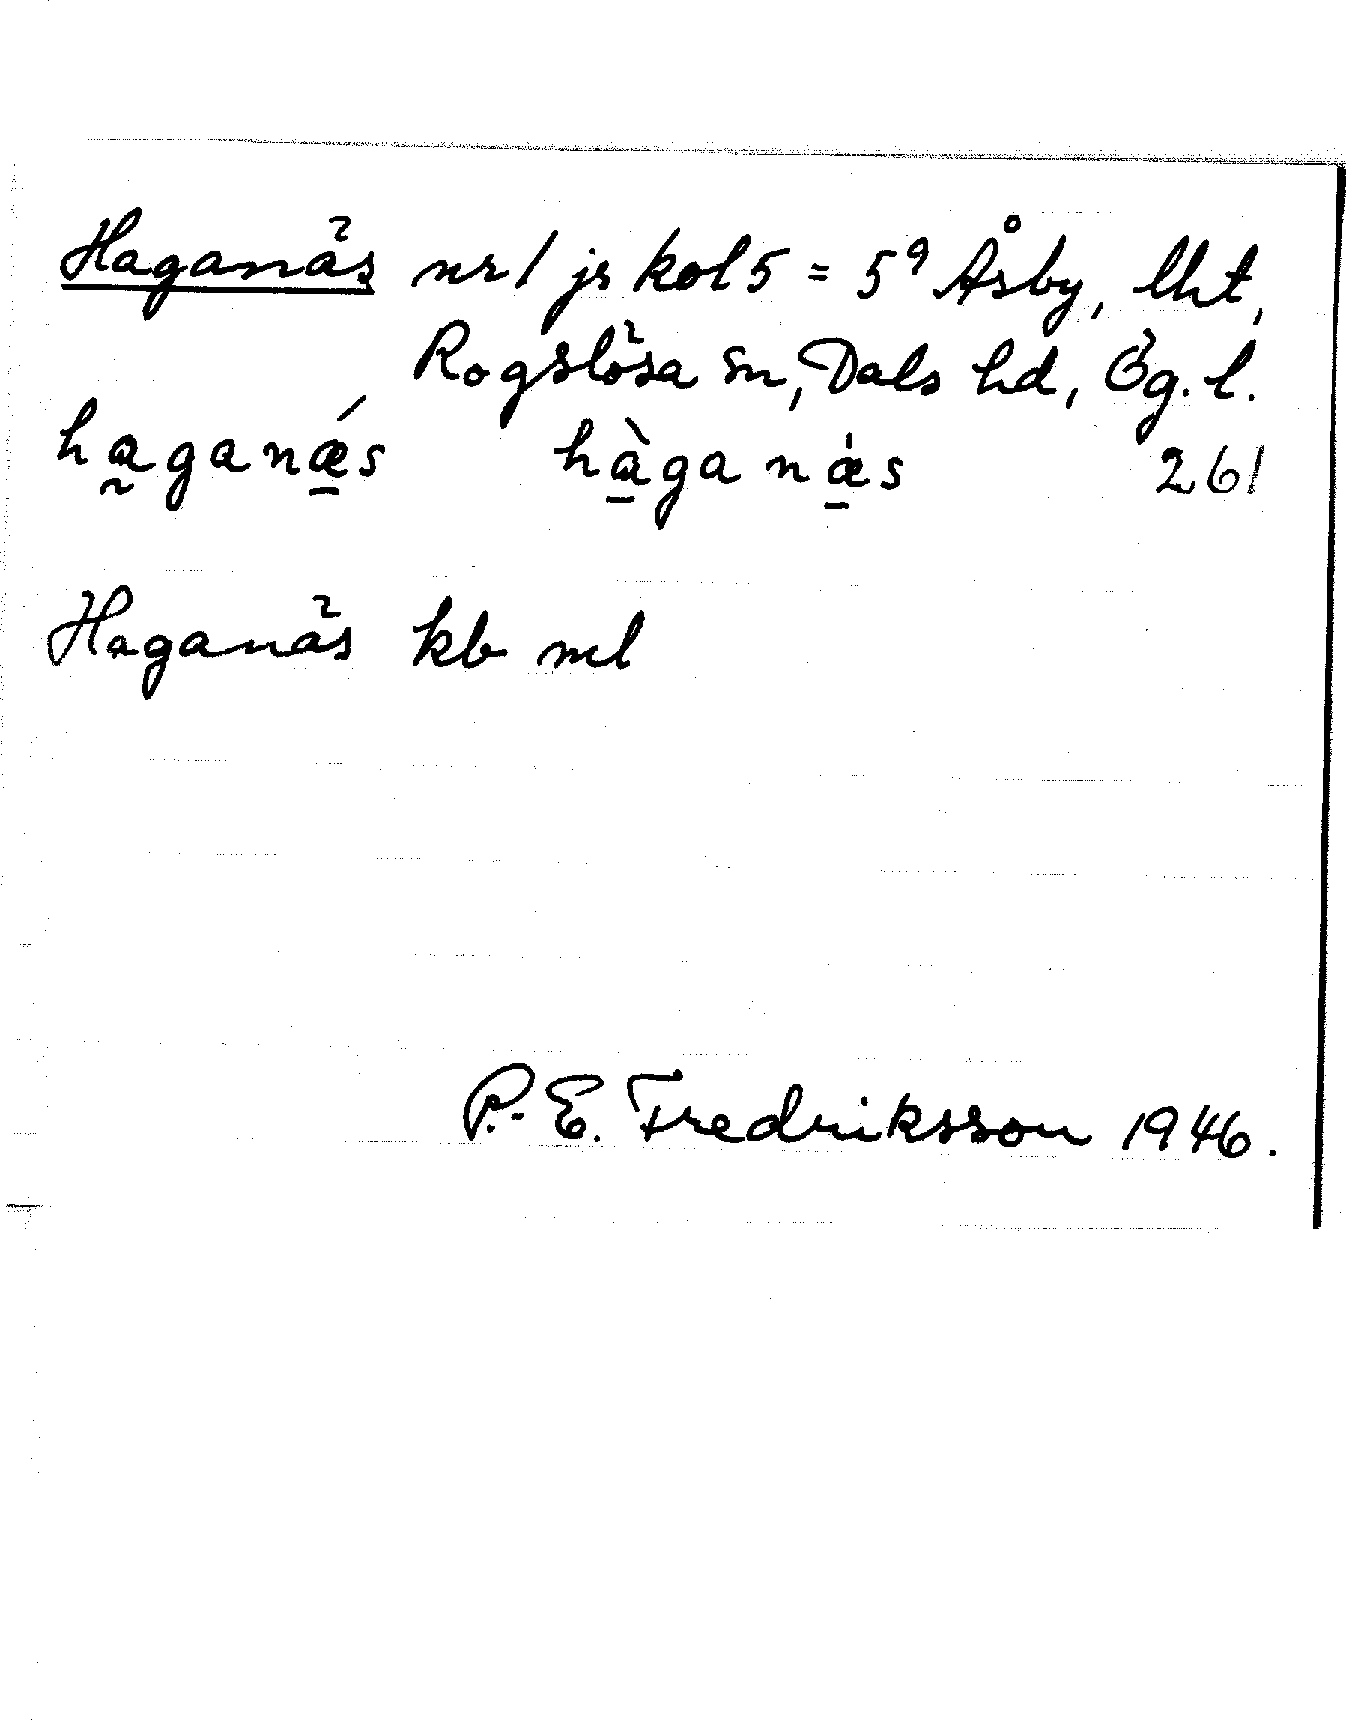 Haganäs nr 1 jr kol 5 = 5⁹ Åsby, lht,
Rogslösa sn, Dals hd, Ög. l.
ha̰ganǽ̱s hà̱ganæ̱̍s 261
Haganäs kb ml
P.-E. Fredriksson 1946.